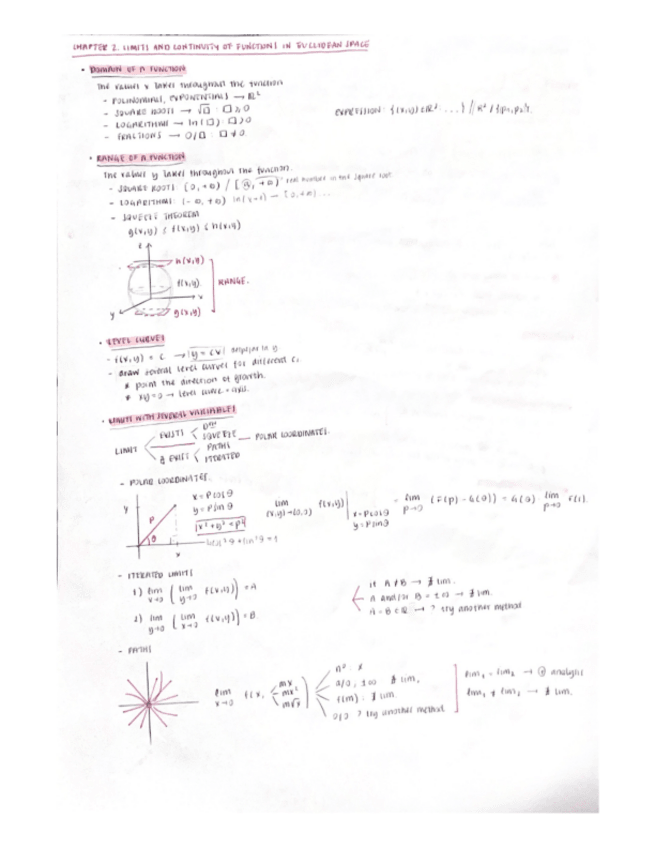 CHAPTER 2. LIMITS AND CONTINUITY OF FUNCTIONS IN EUCLIDEAN SPACE
• DOMAIN OF A FUNCTION
The values x takes throughout the function
- POLINOMIALS, EXPONENTIALS → ℝ²
- SQUARE ROOTS → √□ : □ ≥ 0
- LOGARITHMS → ln(□) : □ > 0
- FRACTIONS → 0/□ : □ ≠ 0.
EXPRESSION: {(x,y) ∈ ℝ² : ...} // ℝ² / {p1, p2}.
• RANGE OF A FUNCTION
The values y takes throughout the function.
- SQUARE ROOTS: [0, +∞) / real number in the square root
- LOGARITHMS: (-∞, +∞)
- SQUEEZE THEOREM
g(x,y) ≤ f(x,y) ≤ h(x,y)
z
h(x,y)
f(x,y)
RANGE.
x
y
g(x,y)
• LEVEL CURVES
- f(x,y) = c → y = cx
- draw several level curves for different c.
* point the direction of growth.
* xy = 0 → level curve = axis.
• LIMITS WITH SEVERAL VARIABLES
LIMIT
EXISTS
SQUEEZE — POLAR COORDINATES.
∄ EXIST
PATHS
ITERATED
- POLAR COORDINATES.
y
P
θ
x
x = ρcosθ
y = ρsinθ
x² + y² = ρ²
cos²θ + sin²θ = 1
lim (x,y)→(0,0) f(x,y) | x=ρcosθ y=ρsinθ = lim ρ→0 (F(ρ) · G(θ)) = G(θ) · lim ρ→0 F(ρ).
- ITERATED LIMITS
1) lim x→0 ( lim y→0 f(x,y) ) = A
2) lim y→0 ( lim x→0 f(x,y) ) = B.
if A ≠ B → ∄ lim.
A and/or B = ±∞ → ∄ lim.
A = B ∈ ℝ → ? try another method
- PATHS
lim x→0 f(x, mx mx² m√x)
∄ lim.
f(m) : ∄ lim.
0/0 ? try another method
lim1 = lim2 →
lim1 ≠ lim2 → ∄ lim.